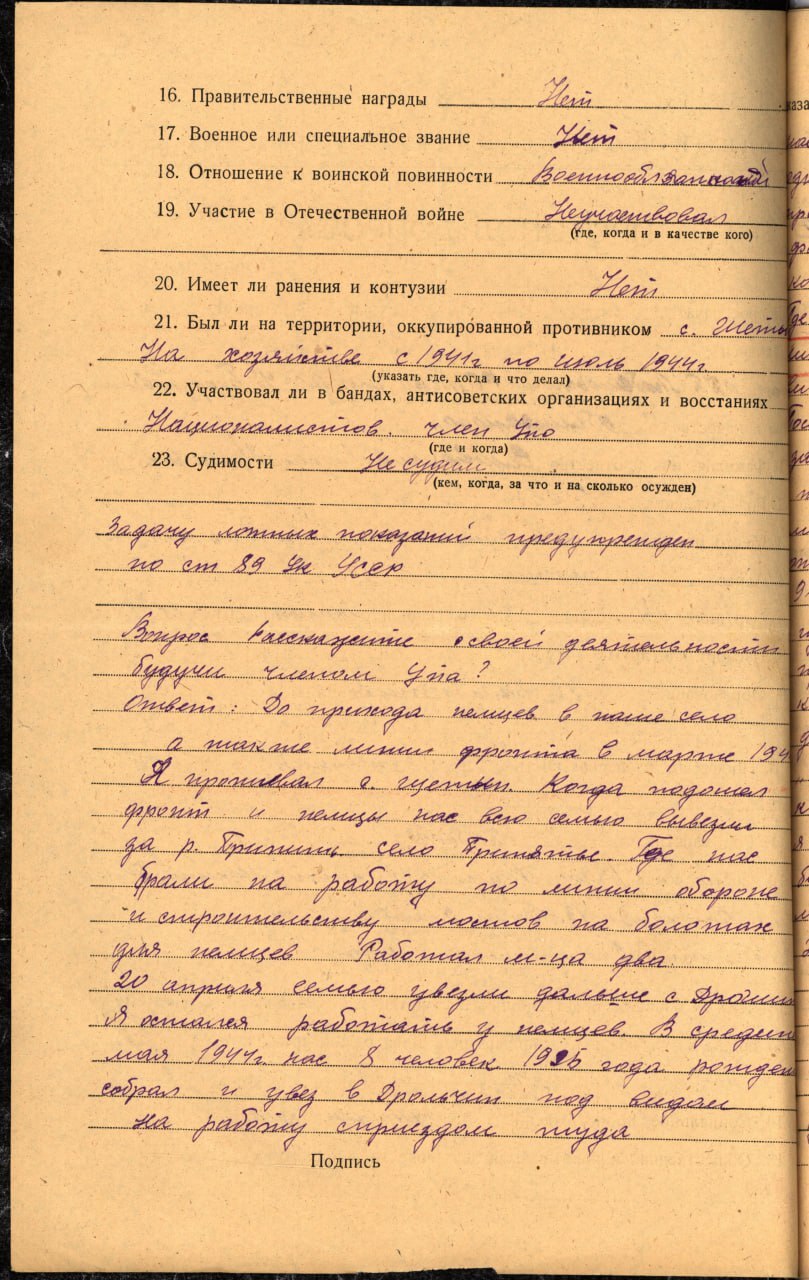 16. Правительственные награды Нет
17. Военное или специальное звание Нет
18. Отношение к воинской повинности Военнообязанный
19. Участие в Отечественной войне Неучаствовал
(где, когда и в качестве кого)
20. Имеет ли ранения и контузии Нет
21. Был ли на территории, оккупированной противником с.
На хозяйстве с 1941г по июль 1944г.
(указать где, когда и что делал)
22. Участвовал ли в бандах, антисоветских организациях и восстаниях
Националистов. член Упа
(где и когда)
23. Судимости Не судим
(кем, когда, за что и на сколько осужден)
Задачу ложних показаний предупрежден
по ст 89 Ук Усср
Вопрос Расскажите о своей деятельности
будучи членом Упа?
Ответ: До прихода немцев в наше село
а также линии фронта в марте 194
Я проживал с. Щетын. Когда подошол
фронт и немцы нас всю семью вывезли
за р. Припять село Припятье. Где нас
брали на работу по линии обороне
и строительству мостов на болотах
для немцев Работал м-ца два.
20 апреля семью увезли дальше с
Я остался работать у немцев. В средин
мая 1944г. нас 8 человек 1925 года рожден
собрал и увез в Дрогичин под видом
на работу сприездом туда
Подпись